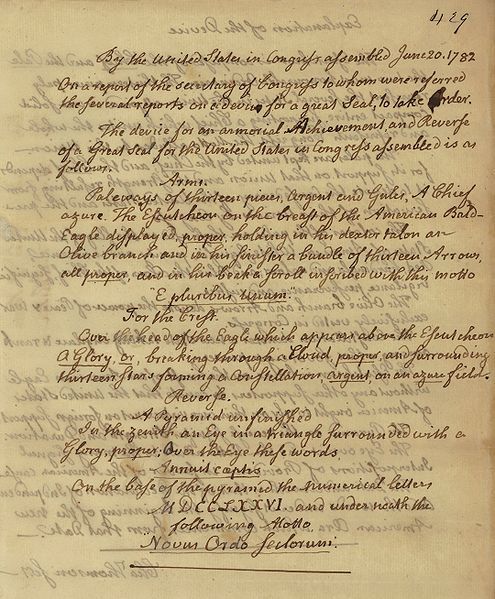 429
By the United States in Congress assembled June 20. 1782
On a report of the secretary of Congress to whom were referred
the several reports on a device for a great Seal, to take Order.
The device for an armorial Atchievement, and Reverse
of a Great Seal for the United States in Congress assembled is as
follows.
Arms.
Paleways of thirteen pieces, Argent and Gules, A Chief
azure. The Escutcheon on the breast of the American Bald-
Eagle displayed, proper, holding in his dexter talon an
Olive branch and in his sinister a bundle of thirteen Arrows,
all proper, and in his beak a scroll inscribed with this motto
E pluribus Unum.
For the Crest.
Over the head of the Eagle which appears above the Escutcheon
A Glory, or, breaking through a Cloud, proper, and surrounding
thirteen Stars forming a Constellation, argent, on an azure field.
Reverse.
A Pyramid unfinished
In the zenith an Eye in a triangle surrounded with a
Glory, proper, Over the Eye these words
Annuit cœptis
On the base of the pyramid the numerical letters
MDCCLXXVI. and underneath the
following Motto
Novus Ordo Seclorum.